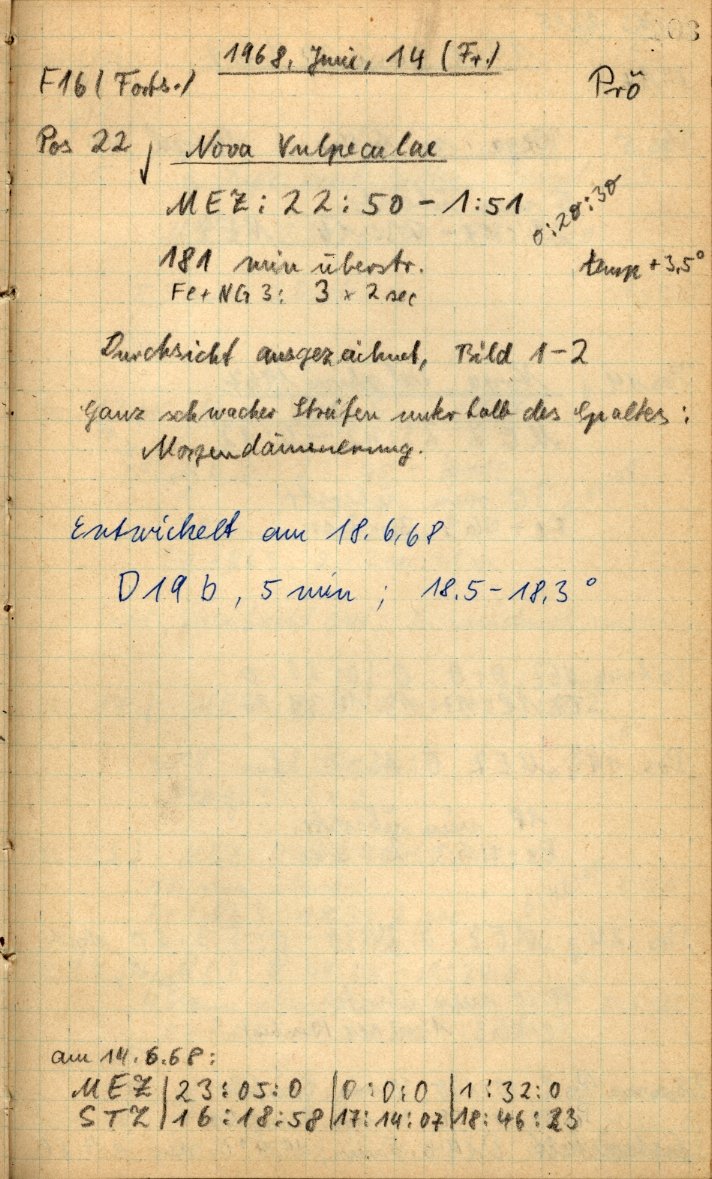 1968, Juni, 14 (Fr.)
F16 (Forts.) Prö
Pos 22 Nova Vulpeculae
MEZ: 22:50 - 1:51
0:20:30
181 min überstr. temp +3,5°
Fe+NG3: 3 x 2 sec
Durchsicht ausgezeichnet, Bild 1-2
Ganz schwacher Streifen unterhalb des Spaltes:
Morgendämmerung.
Entwickelt am 18.6.68
D19b, 5 min ; 18.5 - 18.3°
am 14.6.68:
MEZ | 23:05:0 | 0:0:0 | 1:32:0
STZ | 16:18:58 | 17:14:07 | 18:46:23